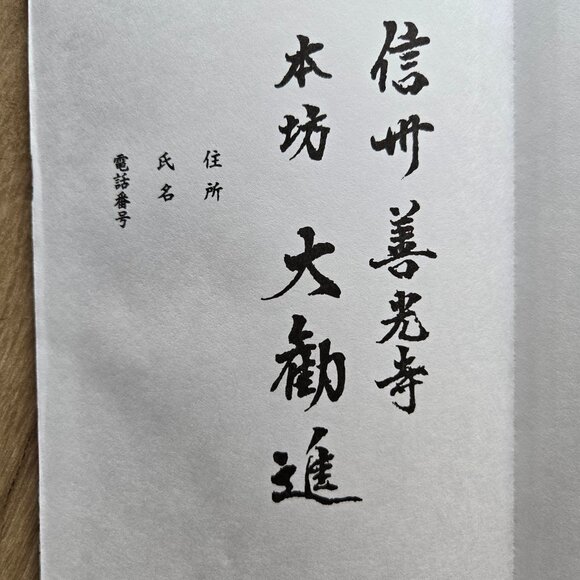 信州善光寺
本坊 大勧進
住所
氏名
電話番号